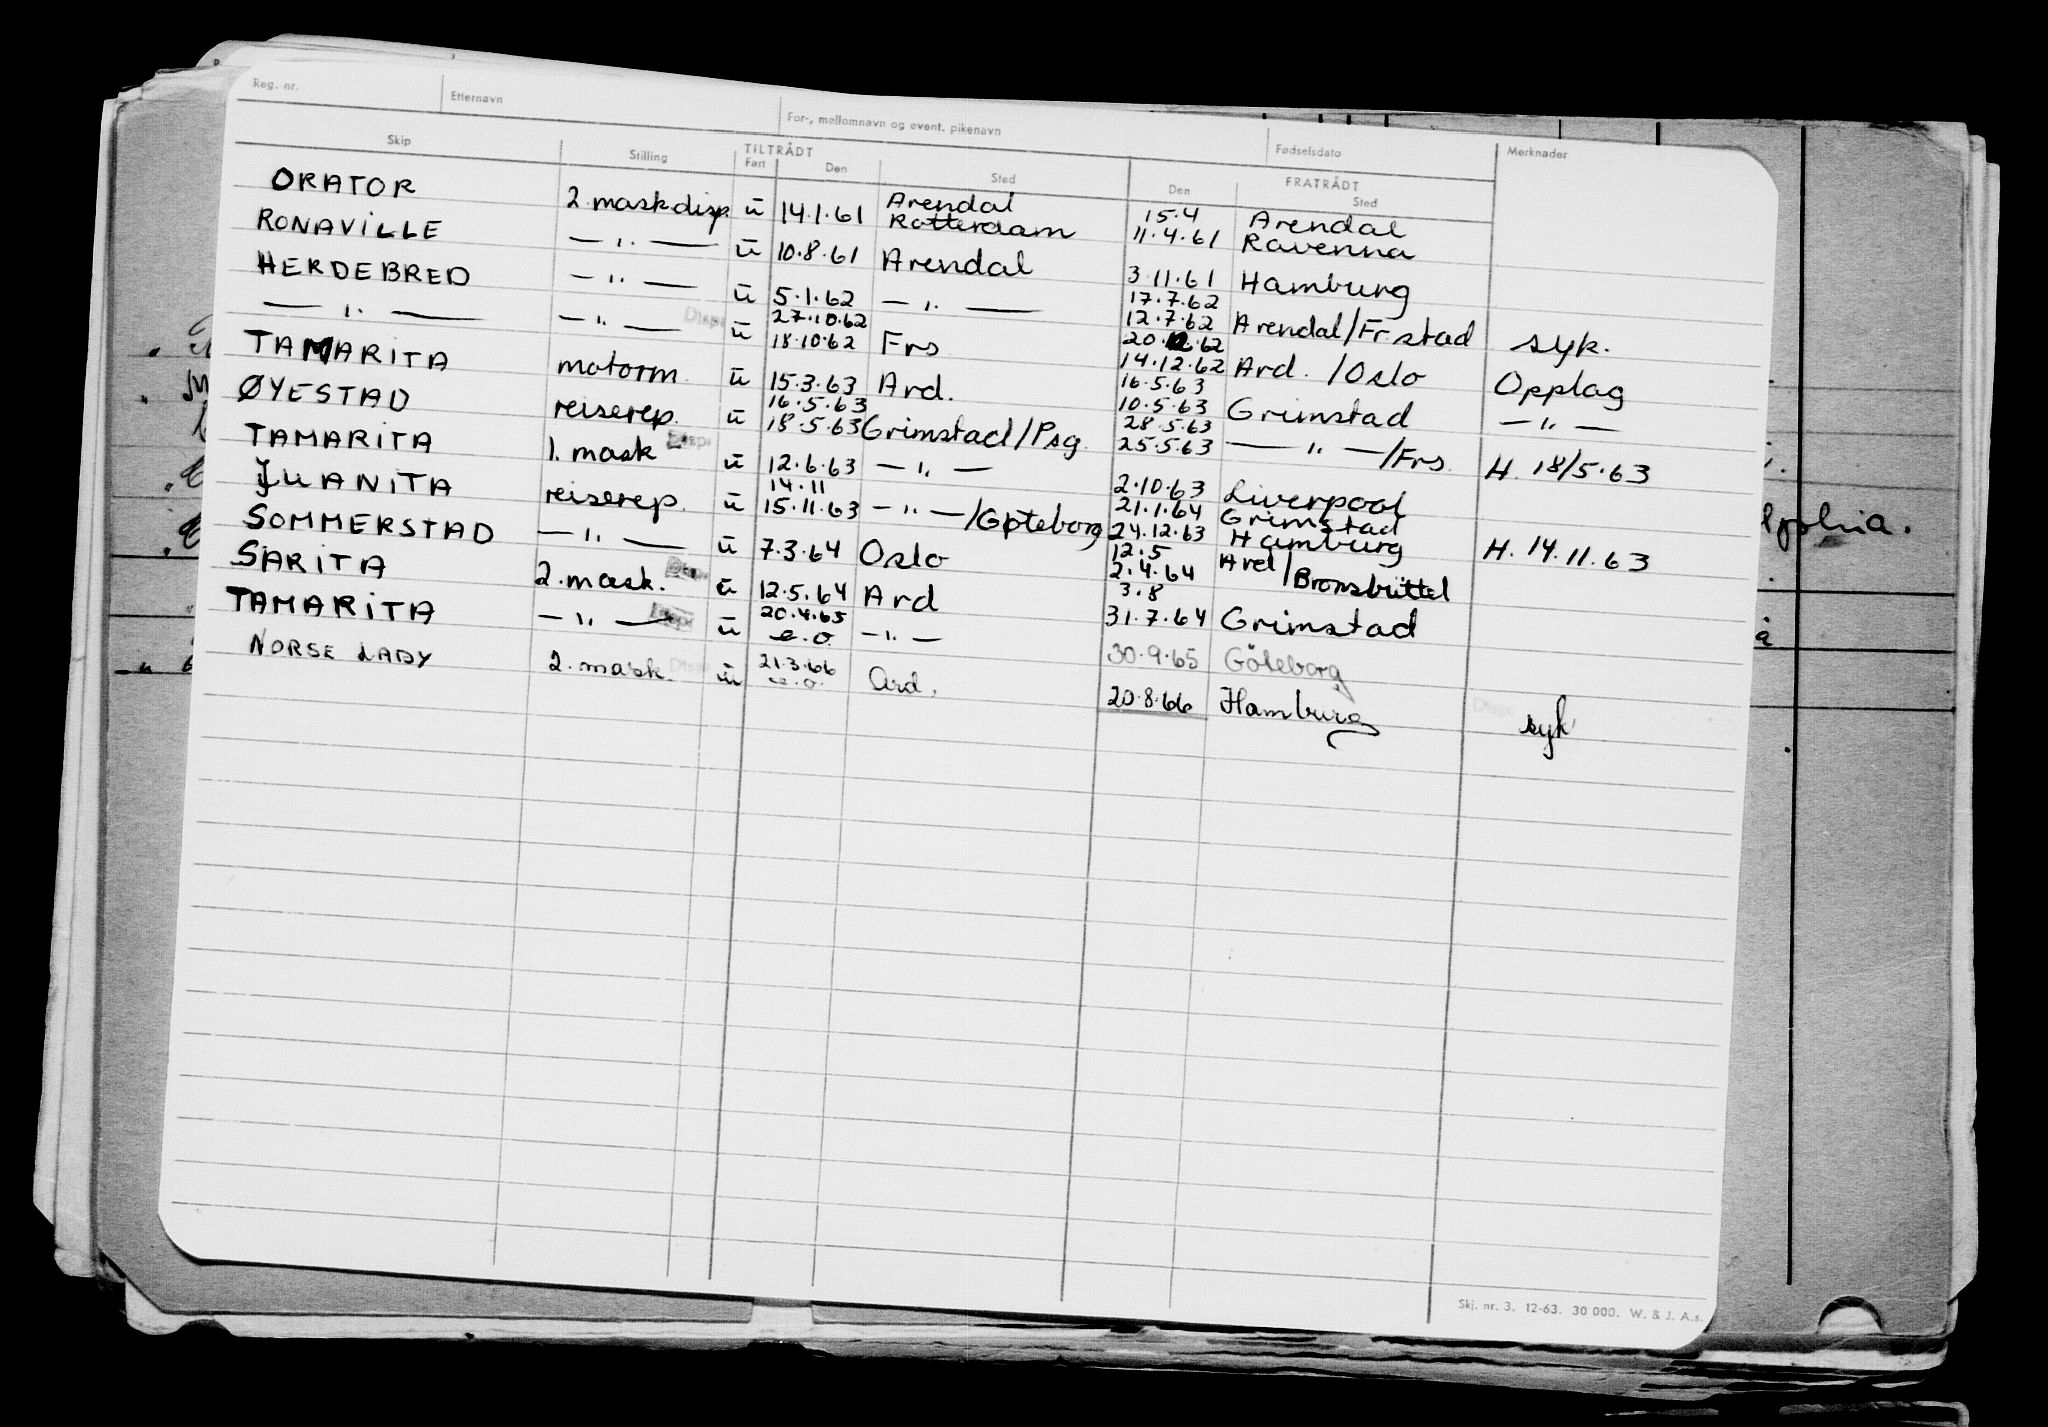 Reg. nr. Etternavn For-, mellomnavn og event. pikenavn Fødselsdato Merknader
Skip Stilling TILTRÅDT Fart Den Sted FRATRÅDT Den Sted
ORATOR 2. mask disp. u 14.1.61 Arendal Rotterdam 15.4 11.4.61 Arendal Ravenna
RONAVILLE — " — u 10.8.61 Arendal 3.11.61 Hamburg
HERDEBRED — " — u 5.1.62 — " — 17.7.62 12.7.62 Arendal/Fr.stad syk.
— " — — " — Disp. u 27.10.62 18.10.62 Frs 20.12.62 14.12.62 Ard. /Oslo Opplag
TAMARITA motorm. u 15.3.63 Ard. 16.5.63 10.5.63 Grimstad — " —
ØYESTAD reiserep. u 16.5.63 18.5.63 Grimstad/Psg. 28.5.63 25.5.63 — " —/Frs. H. 18/5.63
TAMARITA 1. mask Disp. u 12.6.63 — " — 2.10.63 Liverpool
JUANITA reiserep. u 14.11 15.11.63 — " —/Gøteborg 21.1.64 24.12.63 Grimstad Hamburg H. 14.11.63
SOMMERSTAD — " — u 7.3.64 Oslo 12.5 2.4.64 Ard/Brunsbüttel
SARITA 2. mask. Disp. u 12.5.64 Ard 3.8 31.7.64 Grimstad
TAMARITA — " — Disp. u 20.4.65 e.o. — " — 30.9.65 Göteborg
NORSE LADY 2. mask. Disp. u 21.3.66 e.o. Ard. 20.8.66 Hamburg Disp. syk
Skj. nr. 3. 12-63. 30 000. W. & J. A.s.